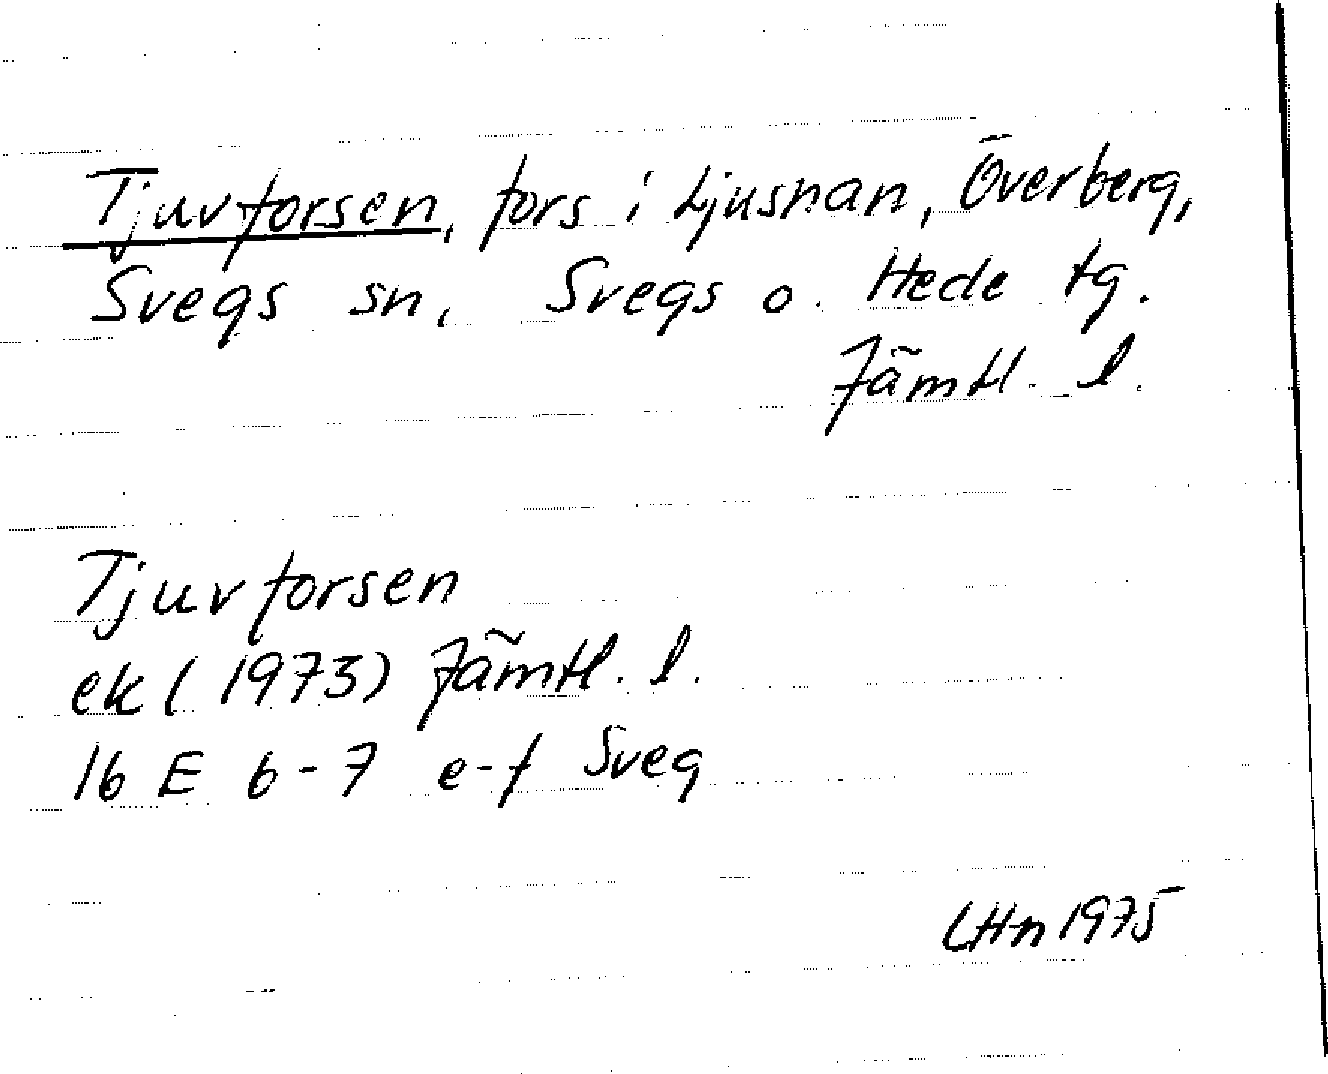 Tjuvforsen, fors i Ljusnan, Överberg,
Svegs sn, Svegs o. Hede tg.
Jämtl. l.
Tjuvforsen
ek (1973) Jämtl. l.
16 E 6-7 e-f Sveg
LHn 1975